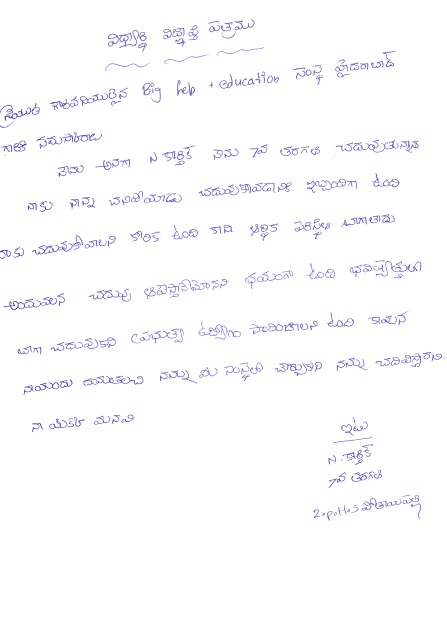 విద్యార్థి విజ్ఞప్తి పత్రము
శ్రీయుత గౌరవనీయులైన Big help + education సంస్థ హైదరాబాద్
గారికి నమస్కారాలు
నేను అనగా N కార్తీక్ నేను 7వ తరగతి చదువుతున్నాను
నాకు నాన్న చనిపోయాడు చదువుకోవడానికి ఇబ్బందిగా ఉంది
నాకు చదువుకోవాలని కోరిక ఉంది కాని ఆర్థిక పరిస్థితి బాగాలేదు
అందువలన చదువు ఆపేస్తానేమోనని భయంగా ఉంది భవిష్యత్తులో
బాగా చదువుకుని ప్రభుత్వ ఉద్యోగం సాదించాలని ఉంది కావున
నాయందు దయతలచి నన్ను మీ సంస్థలో చేర్చుకొని నన్ను చదివిస్తారని
నా యొక్క మనవి
ఇట్లు
N. కార్తీక్
7వ తరగతి
Z.P.H.S